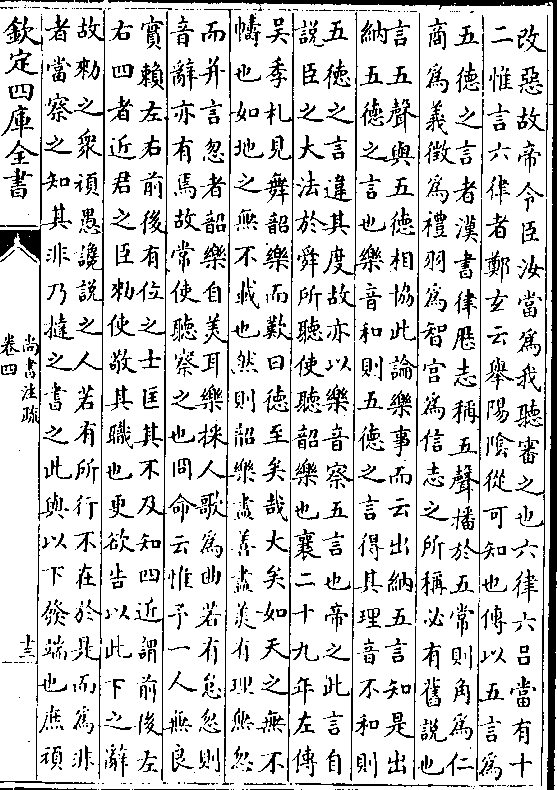 改惡故帝令臣汝當爲我聽審之也六律六呂當有十
二惟言六律者鄭玄云舉陽陰從可知也傳以五言爲
五德之言者漢書律厯志稱五聲播於五常則角爲仁
商爲義徵爲禮羽爲智宮爲信志之所稱必有舊說也
言五聲與五德相協此論樂事而云出納五言知是出
納五德之言也樂音和則五德之言得其理音不和則
五德之言違其度故亦以樂音察五言也帝之此言自
說臣之大法於舜所聽使聽韶樂也襄二十九年左傳
吳季札見舞韶樂而歎曰德至矣哉大矣如天之無不
幬也如地之無不載也然則韶樂盡善盡美有理無忽
而并言忽者韶樂自美耳樂採人歌爲曲若有怠忽則
音辭亦有焉故常使聽察之也冏命云惟予一人無良
實賴左右前後有位之士匡其不及知四近謂前後左
右四者近君之臣勑使敬其職也更欲告以此下之辭
故勑之衆頑愚讒說之人若有所行不在於是而爲非
者當察之知其非乃撻之書之此與以下發端也庶頑
欽定四庫全書
尚書注疏
卷四
十三